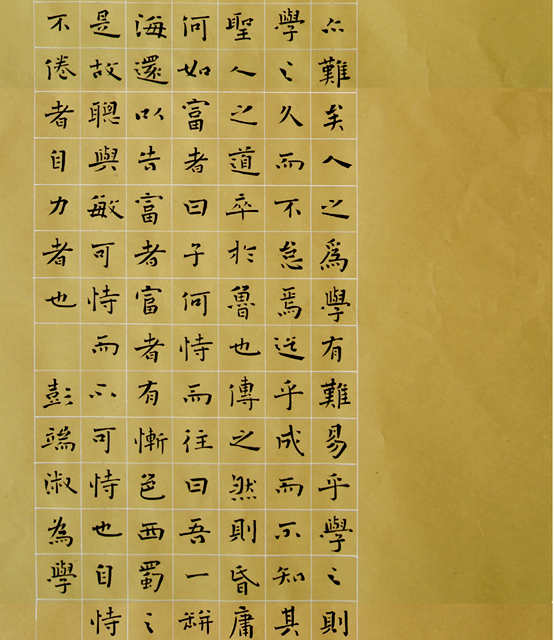 亦難矣人之爲學有難易乎學之則
學之久而不怠焉迄乎成而不知其
聖人之道卒於魯也傳之然則昏庸
何如富者曰子何恃而往曰吾一缾
海還以告富者富者有慚色西蜀之
是故聰與敏可恃而不可恃也自恃
不倦者自力者也 彭端淑為學